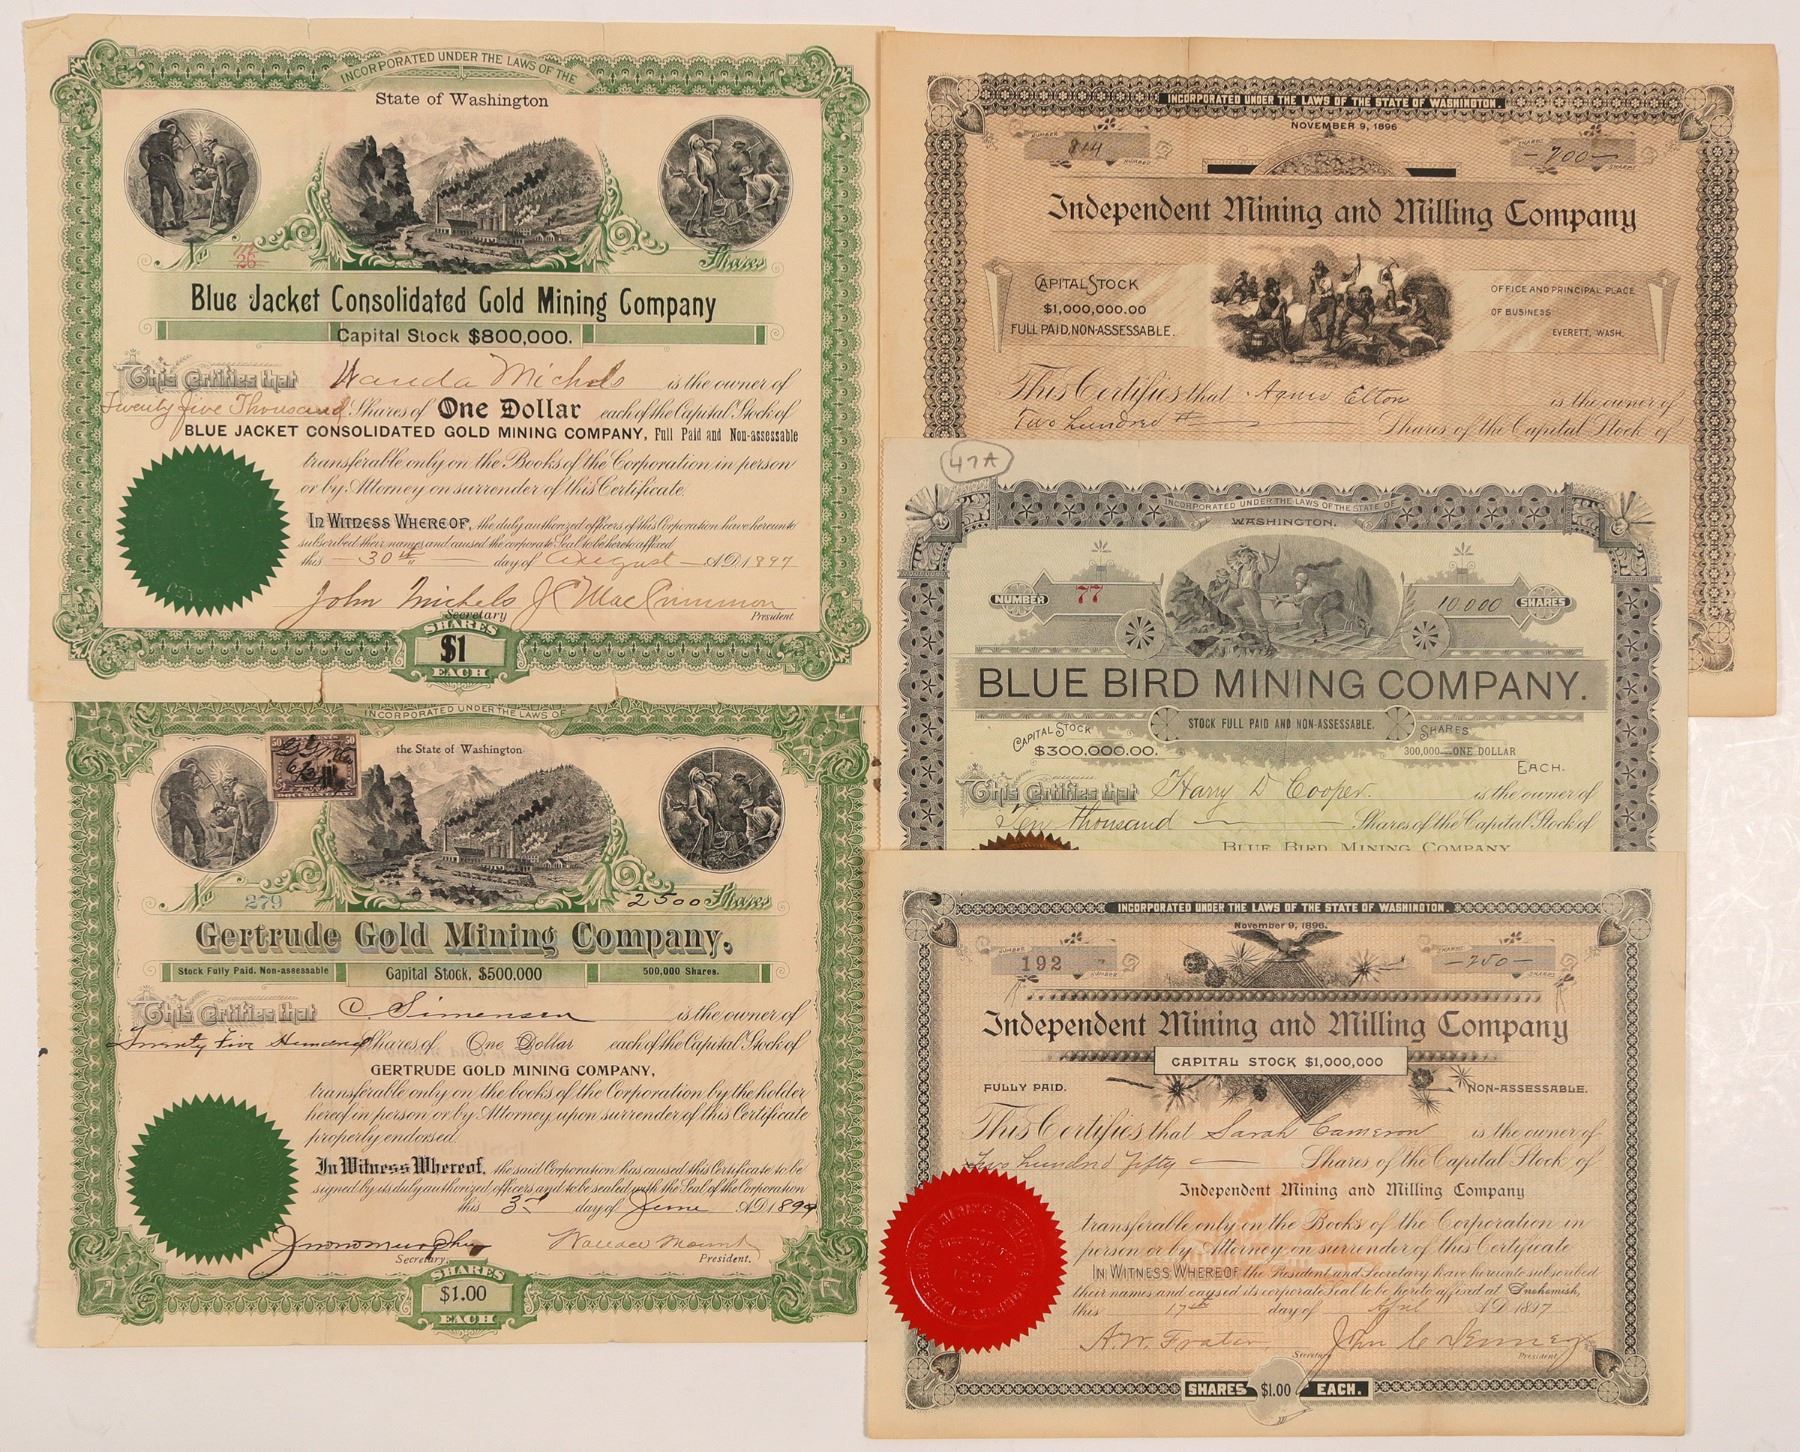 INCORPORATED UNDER THE LAWS OF THE
State of Washington
No 26 Shares
Blue Jacket Consolidated Gold Mining Company
Capital Stock $800,000.
This Certifies that Wanda Michols is the owner of
Twenty five Thousand Shares of One Dollar each of the Capital Stock of
BLUE JACKET CONSOLIDATED GOLD MINING COMPANY, Full Paid and Non-assessable
transferable only on the Books of the Corporation in person
or by Attorney on surrender of this Certificate.
In Witness Whereof, the duly authorized officers of this Corporation have hereunto
subscribed their names and caused the corporate Seal to be hereto affixed
this 30th day of August A.D. 1897
John Michols J C MacCrimmon
Secretary President
SHARES
$1
EACH
INCORPORATED UNDER THE LAWS OF
the State of Washington
No 279 2500 Shares
Gertrude Gold Mining Company.
Stock Fully Paid. Non-assessable Capital Stock, $500,000 500,000 Shares.
This Certifies that C. Simensen is the owner of
Twenty Five Hundred Shares of One Dollar each of the Capital Stock of
GERTRUDE GOLD MINING COMPANY,
transferable only on the books of the Corporation by the holder
hereof in person or by Attorney, upon surrender of this Certificate
properly endorsed.
In Witness Whereof, the said Corporation has caused this Certificate to be
signed by its duly authorized officers and to be sealed with the Seal of the Corporation
this 3rd day of June A.D. 1899
Secretary. President.
SHARES
$1.00
EACH
INCORPORATED UNDER THE LAWS OF THE STATE OF WASHINGTON.
NOVEMBER 9, 1896
NUMBER 814 NUMBER SHARES -200- SHARES
Independent Mining and Milling Company
CAPITAL STOCK
$1,000,000.00
FULL PAID, NON-ASSESSABLE.
OFFICE AND PRINCIPAL PLACE
OF BUSINESS
EVERETT, WASH.
This Certifies that Agnes Elton is the owner of
Two hundred Shares of the Capital Stock of
47A
INCORPORATED UNDER THE LAWS OF THE STATE OF
WASHINGTON.
NUMBER 77 10,000 SHARES
BLUE BIRD MINING COMPANY.
STOCK FULL PAID AND NON-ASSESSABLE.
CAPITAL STOCK
$300,000.00.
SHARES
300,000—ONE DOLLAR
EACH.
This Certifies that Harry D Cooper is the owner of
Ten thousand Shares of the Capital Stock of
BLUE BIRD MINING COMPANY
INCORPORATED UNDER THE LAWS OF THE STATE OF WASHINGTON.
November 9, 1896.
NUMBER 192 NUMBER SHARES -250- SHARES
Independent Mining and Milling Company
CAPITAL STOCK $1,000,000
FULLY PAID. NON-ASSESSABLE.
This Certifies that Sarah Cameron is the owner of
Two hundred Fifty Shares of the Capital Stock of
Independent Mining and Milling Company
transferable only on the Books of the Corporation in
person or by Attorney on surrender of this Certificate
IN WITNESS WHEREOF the President and Secretary have hereunto subscribed
their names and caused its corporate Seal to be hereto affixed at Snohomish,
this 17th day of April A.D. 1897
A.W. Frater
Secretary President
SHARES $1.00 EACH.